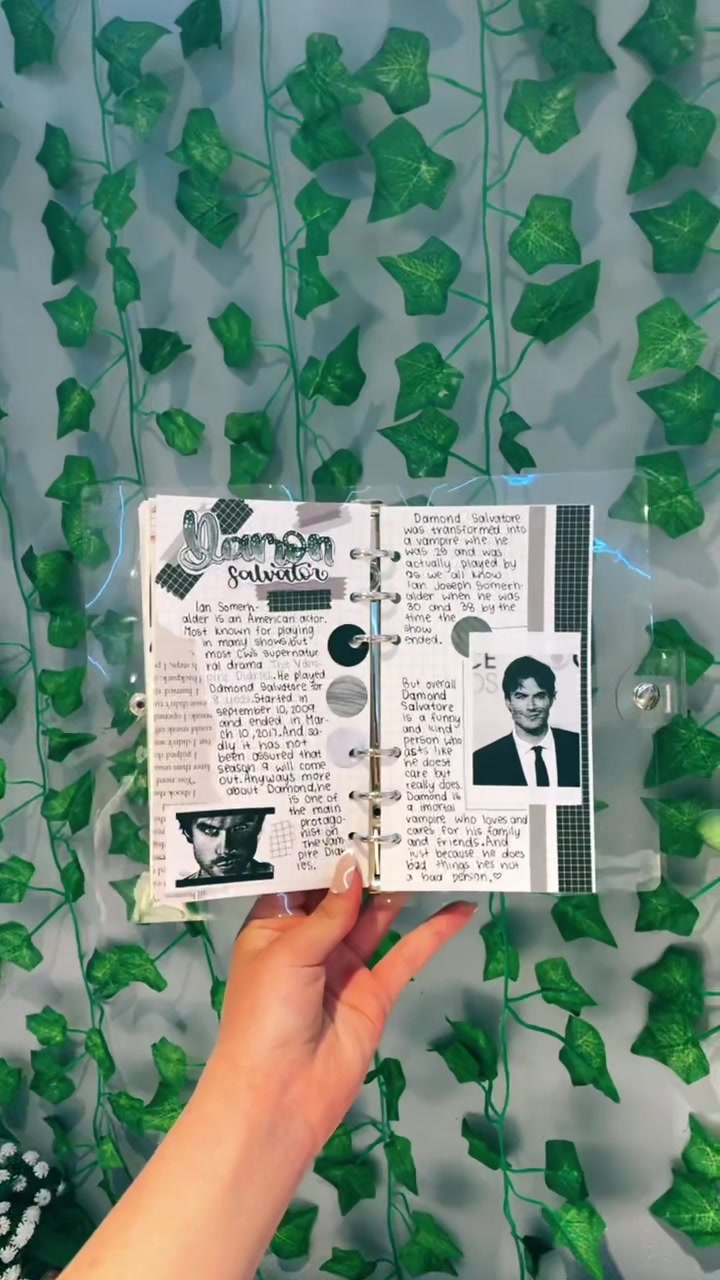 Damon
Salvator
Ian Somerh-
alder is an American actor.
Most known for playing
in many shows, but
most CW's supernatu
ral drama The Vam-
pire Diaries. He played
Damond Salvatore for
8 years. Started in
september 10, 2009
and ended in Mar-
ch 10, 2017. And sa-
dly it has not
been assured that
season 9 will come
out. Anyways more
about Damond, he
is one of
the main
protago-
nist on
The Vam-
pire Diar
ies.
Damond Salvatore
was transformed into
a vampire whe he
was 28 and was
actually played by
as we all know
Ian Joseph Somerh-
alder when he was
30 and 38 by the
time the
show
ended.
But overall
Damond
Salvatore
is a funny
and kind
person who
acts like
he doest
care but
really does.
Damond is
a imortal
vampire who loves and
cares for his family
and friends. And
just because he does
bad things hes not
a bad person.♡